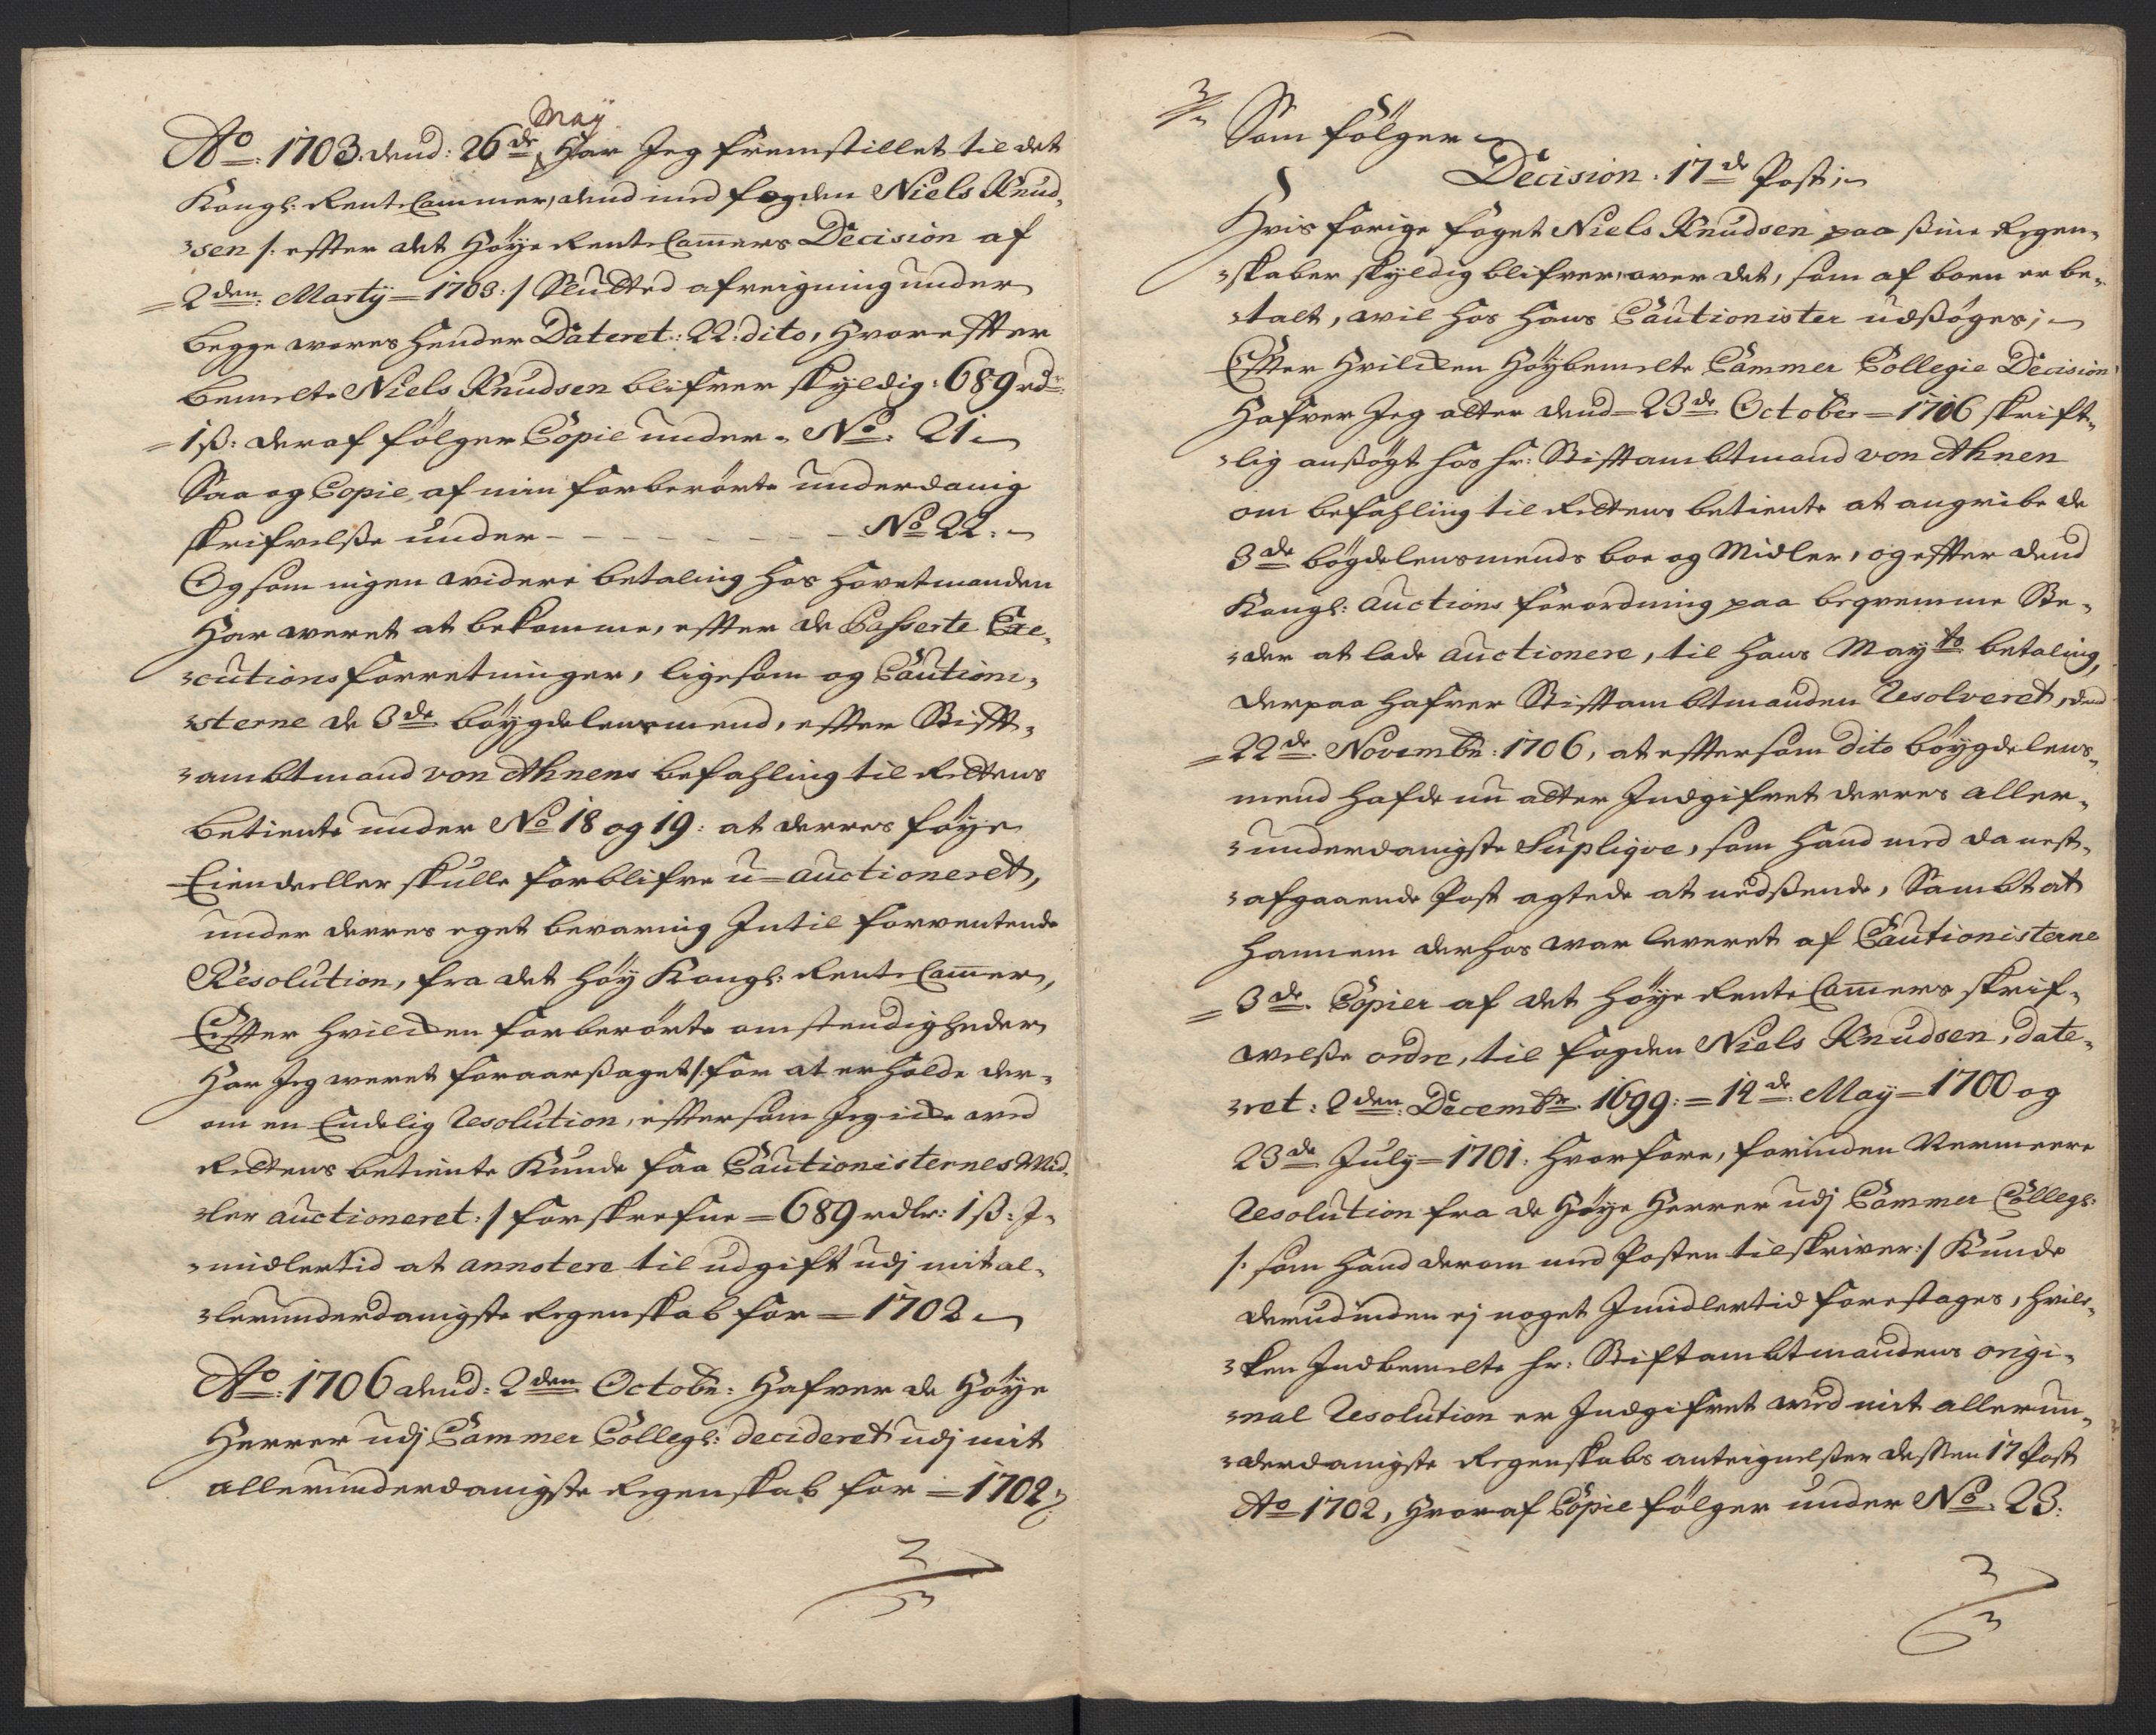 Ao: 1703. dend: 26de May Har Jeg fremstillet til det
Kongl: Rente Cammer, dend med fogden Niels Knud-
sen /: effter det Høye Rente Camers Decision af
2den: Martij 1703:/ Slutted afreigning under
begge wores hender Dateret: 22: dito, Hvoreffter
bemelte Niels Knudsen blifver skyldig: 689 rdr:
1 ß: deraf følger Copie under No: 21
Saa og Copie af min forberørte underdanig
skrifvelße under - - - - - - No 22:
Og som ingen widere betaling hos Hovetmanden
Har weret at bekomme, effter de Passerte Exe-
cutions forretninger, ligesom og Cautioni-
sterne de 3de bøygdelensmend, effter Stifft-
ambtmand von Ahnens befahling til Rettens
betiente under No 18 og 19: at derres føye
Eiendeeller skulle forblifve u-auctioneret,
under derres eget bevaring Intil forventende
Resolution, fra det høy Kongl: Rente Camer,
Effter hvilcken forberørte omstendigheder
Har Jeg weret foraarßaget /: for at erholde der-
om en Endelig Resolution, efftersom Jeg icke wed
Rettens betiente Kunde faa Cautionisternes Mid-
ler auctioneret:/ forskrefne 689 rdlr: 1 ß: I-
midlertid at annotere til udgift udj mit al-
lerunderdanigste Regenskab for 1702
Ao: 1706 dend: 2den Octobr: Hafver de Høye
Herrer udj Cammer Collegl: decideret udj mit
allerunderdanigste Regenskab for 1702
Som følger
Decision. 17de Post;
Hvis forige foget Niels Knudsen paa ßine Regen-
skaber skyldig blifver, over det, som af boen er be-
talt, wil hos hans Cautionister udßøges;
Effter Hvilcken Høybemelte Cammer Collegie Decision
Hafver Jeg atter dend 23de October 1706 skrift-
lig anßøgt hos hr: Stifftambtmand von Ahnen
om befahling til Rettens betiente at angribe de
3de bøgdelensmends boe og Midler, og effter dend
Kongl: auctions forordning paa beqvemme Ste-
der at lade auctionere, til hans Maytts betaling,
derpaa hafver Stifftambtmanden Resolveret, dend
22de Novembr: 1706, at efftersom dito bøygdelens-
mend hafde nu atter Indgifvet derres aller-
underdanigste Supliqve, som hand med da nest-
afgaaende Post agtede at nedßende, Sambt at
hannem derhos war leveret af Cautionisterne
3de Copier af det høye Rente Camers skrif-
welße ordre, til fogden Niels Knudsen, date-
ret: 2den: Decembr. 1699: 14de May 1700 og
23de July 1701: Hvorfore, forinden Nermeere
Resolution fra de Høye Herrer udj Cammer Collegl:
/: som hand derom med Posten tilskriver:/ Kunde
derudinden ej noget Imidlertid foretages, hvil-
ken Indbemelte hr: Stiftambtmandens origi-
nal Resolution er Indgifvet wed mit allerun-
derdanigste Regenskabs anteignelßer desßen 17 Post
Ao 1702, Hvoraf Copie følger under No. 23: